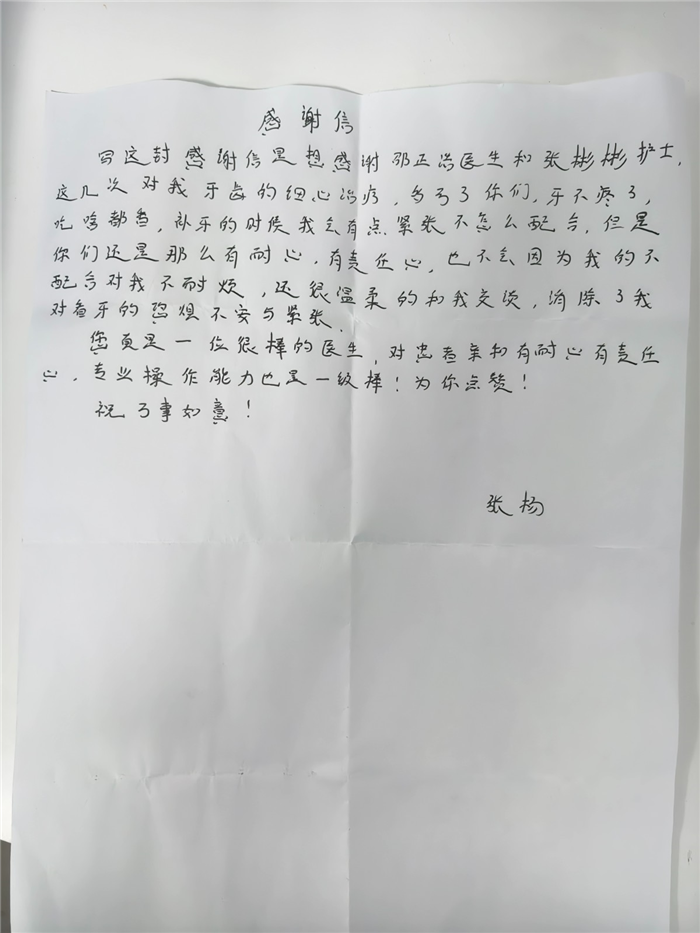 感谢信
写这封感谢信是想感谢邵正治医生和张彬彬护士,
这几次对我牙齿的细心治疗,多亏了你们,牙不疼了,
吃啥都香,补牙的时候我会有点紧张不怎么配合,但是
你们还是那么有耐心,有责任心,也不会因为我的不
配合对我不耐烦,还很温柔的和我交谈,消除了我
对看牙的恐惧不安与紧张.
您真是一位很棒的医生,对患者亲和有耐心有责任
心,专业操作能力也是一级棒!为你点赞!
祝万事如意!
张杨